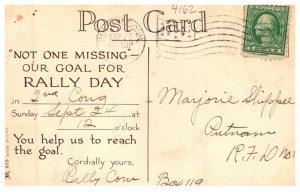 4162
Post Card
"NOT ONE MISSING"
OUR GOAL FOR
RALLY DAY
in 2nd Cong
Sunday Sept 24 at
12 o'clock
You help us to reach
the goal.
Cordially yours,
Rally Com
Marjorie Shippee
Putnam
R.F.D No 1
Box 119